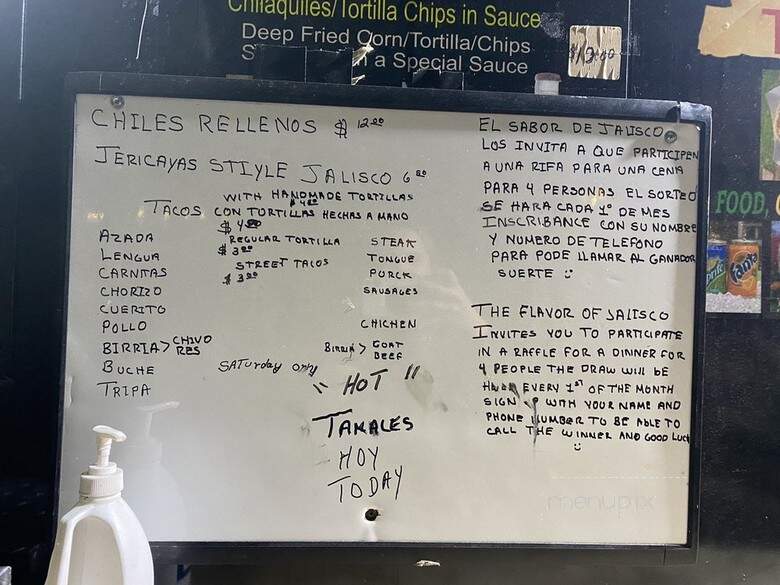 Chilaquiles/Tortilla Chips in Sauce
Deep Fried Corn/Tortilla/Chips
a Special Sauce
CHILES RELLENOS $ 12.00
JERICAYAS STIYLE JALISCO 6.00
WITH HANDMADE TORTILLAS
TACOS CON TORTILLAS HECHAS A MANO
REGULAR TORTILLA
$ 3.00
STREET TACOS
AZADA
LENGUA
CARNTAS
CHORIZO
CUERITO
POLLO
BIRRIA > CHIVO
RES
BUCHE
TRIPA
STEAK
TONGUE
PORCK
SAUSAGES
CHICHEN
BIRRIA > GOAT
BEEF
SATURDAY ONLY
"HOT"
TAMALES
HOY
TODAY
EL SABOR DE JALISCO
LOS INVITA A QUE PARTICIPEN
A UNA RIFA PARA UNA CENA
PARA 4 PERSONAS EL SORTEO
SE HARA CADA 1º DE MES
INSCRIBANCE CON SU NOMBRE
Y NUMERO DE TELEFONO
PARA PODE LLAMAR AL GANADOR
SUERTE
THE FLAVOR OF JALISCO
INVITES YOU TO PARTICIPATE
IN A RAFFLE FOR A DINNER FOR
4 PEOPLE THE DRAW WILL BE
EVERY 1ST OF THE MONTH
SIGN WITH YOUR NAME AND
PHONE NUMBER TO BE ABLE TO
CALL THE WINNER AND GOOD LUCK
FOOD,
fanta
menupix